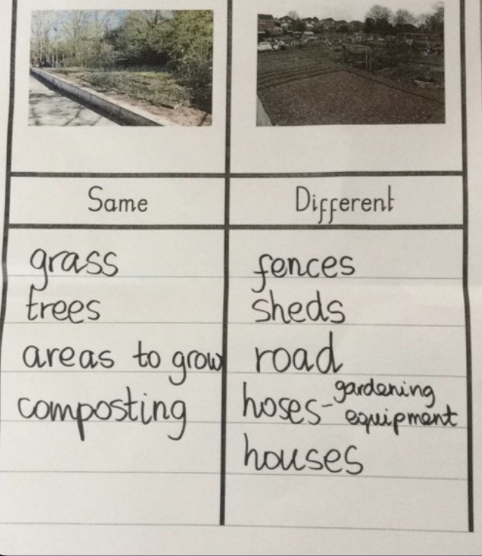 Same
Different
grass
fences
trees
sheds
areas to grow
road
composting
hoses - gardening
equipment
houses